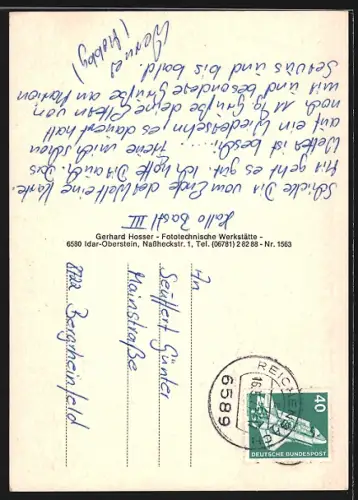 Hallo Basti III
Schicke Dir vom Ende der Welt eine Karte.
Mir geht es gut. Ich hoffe Dir auch. Das
Wetter ist besch. Freue mich schon
auf ein Wiedersehn, es dauert halt
noch 11 Tg. Grüße deine Eltern von
mir und besondere Grüße an Marion
Servus und bis bald!
Werner
(Hobby)
Gerhard Hosser - Fototechnische Werkstätte -
6580 Idar-Oberstein, Naßheckstr. 1, Tel. (06781) 2 82 88 - Nr. 1563
An
Seuffert Günter
Mainstraße
8722 Bergrheinfeld
6589
40
DEUTSCHE BUNDESPOST